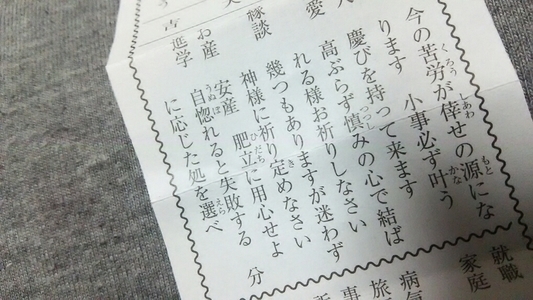 今の苦労が倖せの源にな
ります　小事必ず叶う
慶びを持って来ます
愛
高ぶらず慎みの心で結ば
れる様お祈りしなさい
縁談
幾つもありますが迷わず
神様に祈り定めなさい
お産
安産　肥立に用心せよ
進学
自惚れると失敗する　分
に応じた処を選べ
就職
家庭
病気
旅
事